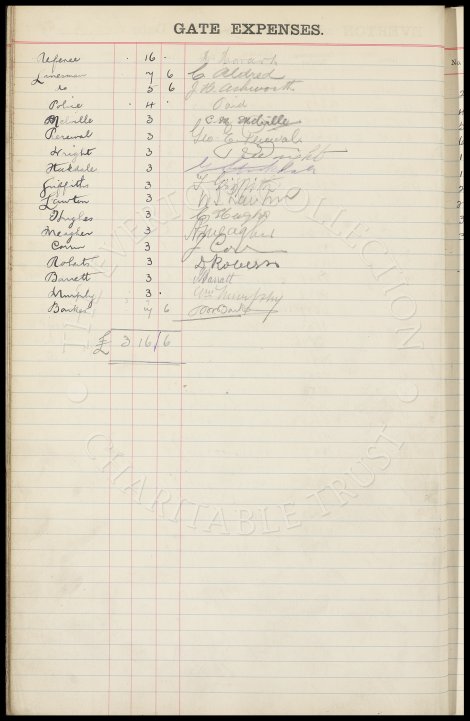 GATE EXPENSES.
No.
Referee . 16 .
Linesman 7 6 C Aldred
Do 5 6 J B Ashworth
Police . 4 . Paid
Melville 3 C. M. Melville
Percival 3 Geo E Percival
Wright 3 J Wright
Stockdale 3
Griffiths 3 T Griffiths
Lawton 3
Hughes 3 C Hughes
Meagher 3 Meagher
3 J
Roberts 3 D Roberts
Barrett 3 Barrett
Murphy 3 . Wm Murphy
Bankes 7 6
£ 3 16 6
THE EVERTON COLLECTION
CHARITABLE TRUST